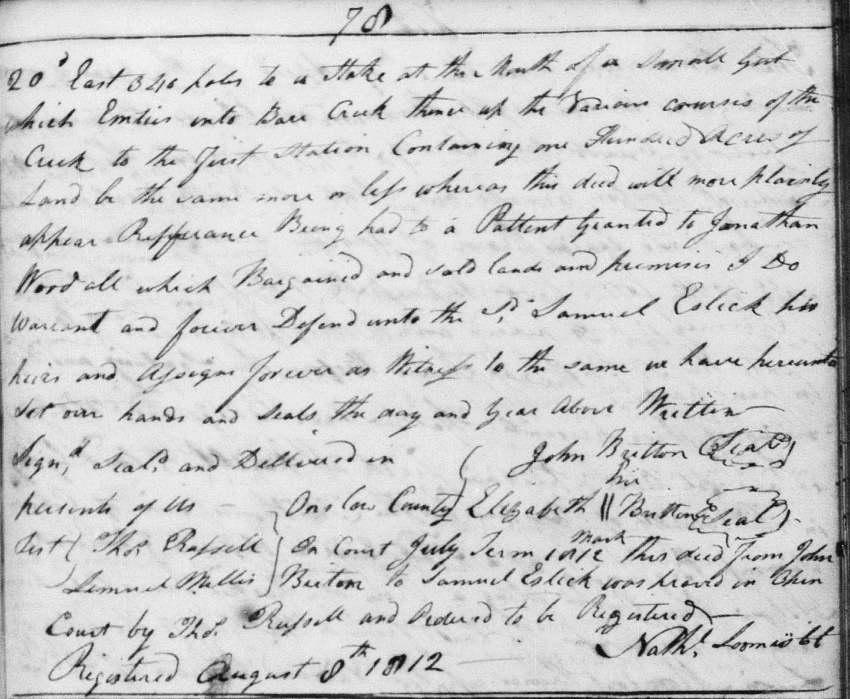 78
20d East 346 poles to a Stake at the Mouth of a Small Gut
which Emties into Bare Creek thence up the Various courses of the
Creek to the first Station Containing one Hundred Acres of
Land be the same more or less whereas this deed will more plainly
appear Refferance Being had to a Pattent Granted to Jonathan
Wood all which Bargained and sold lands and premises I Do
Warrant and forever Defend unto the Sd. Samuel Eslick his
heirs and Assigns forever as Witness to the same we have hereunto
Set our hands and Seals the day and year Above Written
Signd, Seald and Dellivered in John Britton (Seal)
presents of us
her
Onslow County Elizabeth || Britton (Seal)
mark
Test Thos. Russell In Court July Term 1812 this deed from John
Lemuel Millis Britton to Samuel Eslick was proved in Open
Court by Thos. Russell and Ordered to be Registered
Nathl. Loomis Ct
Registered August 8th 1812